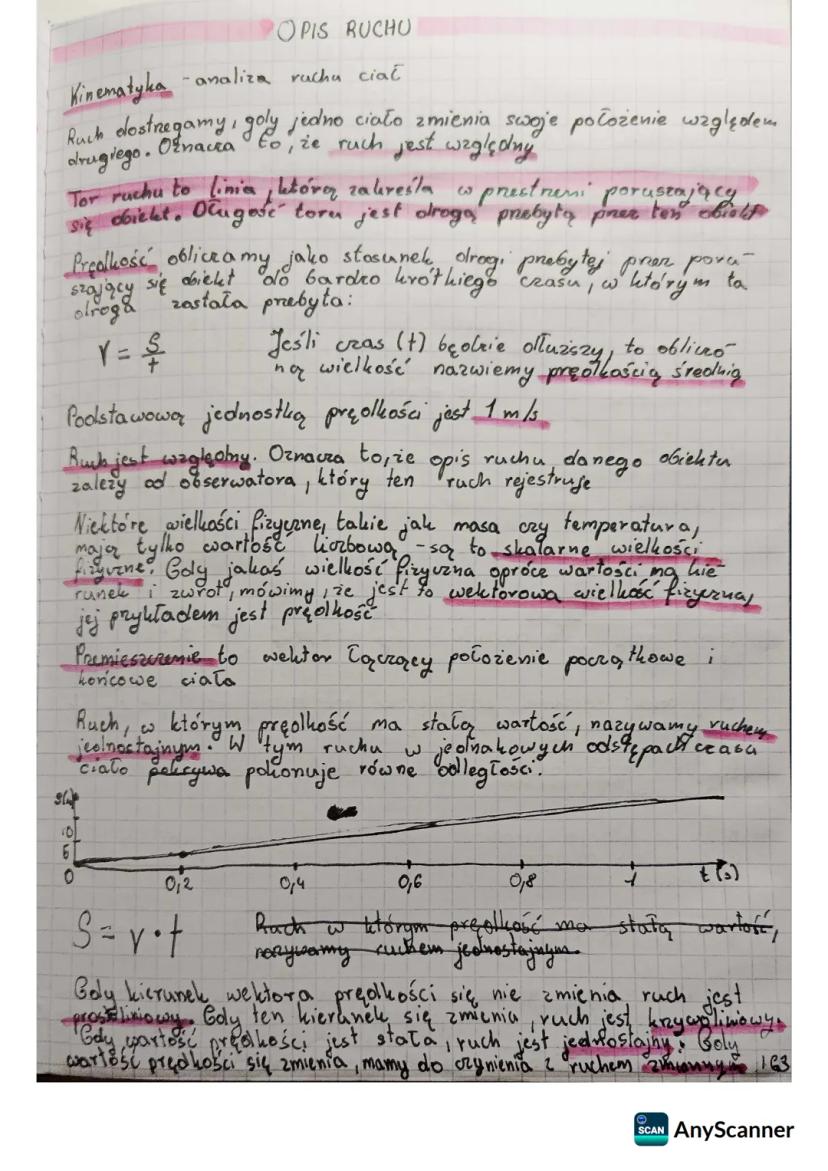 OPIS RUCHU
Kinematyka - analiza ruchu ciał
Ruch dostrzegamy, gdy jedno ciało zmienia swoje położenie względem
drugiego. Oznacza to, że ruch jest względny
Tor ruchu to linia, którą zakreśla w przestrzeni poruszający
się obiekt. Długość toru jest drogą przebytą przez ten obiekt
Prędkość obliczamy jako stosunek drogi przebytej przez poru-
szający się obiekt do bardzo krótkiego czasu, w którym ta
droga zastała przebyta:
V = S/t
Jeśli czas (t) będzie dłuższy, to obliczo-
ną wielkość nazwiemy prędkością średnią
Podstawową jednostką prędkości jest 1 m/s
Ruch jest względny. Oznacza to, że opis ruchu danego obiektu
zależy od obserwatora, który ten ruch rejestruje
Niektóre wielkości fizyczne, takie jak masa czy temperatura,
mają tylko wartość liczbową - są to skalarne wielkości
fizyczne. Gdy jakaś wielkość fizyczna oprócz wartości ma kie-
runek i zwrot, mówimy, że jest to wektorowa wielkość fizyczna,
jej przykładem jest prędkość
Przemieszczenie to wektor łączący położenie początkowe i
końcowe ciała
Ruch, w którym prędkość ma stałą wartość, nazywamy ruchem
jednostajnym. W tym ruchu w jednakowych odstępach czasu
ciało pokonuje równe odległości.
10
5
0 0,2 0,4 0,6 0,8 1 t(s)
S = v · t
Ruch w którym prędkość ma stałą wartość,
nazywamy ruchem jednostajnym.
Gdy kierunek wektora prędkości się nie zmienia ruch jest
prostliniowy. Gdy ten kierunek się zmienia, ruch jest krzywoliniowy.
Gdy wartość prędkości jest stała, ruch jest jednostajny. Gdy
wartość prędkości się zmienia, mamy do czynienia z ruchem zmiennym 163
SCAN AnyScanner